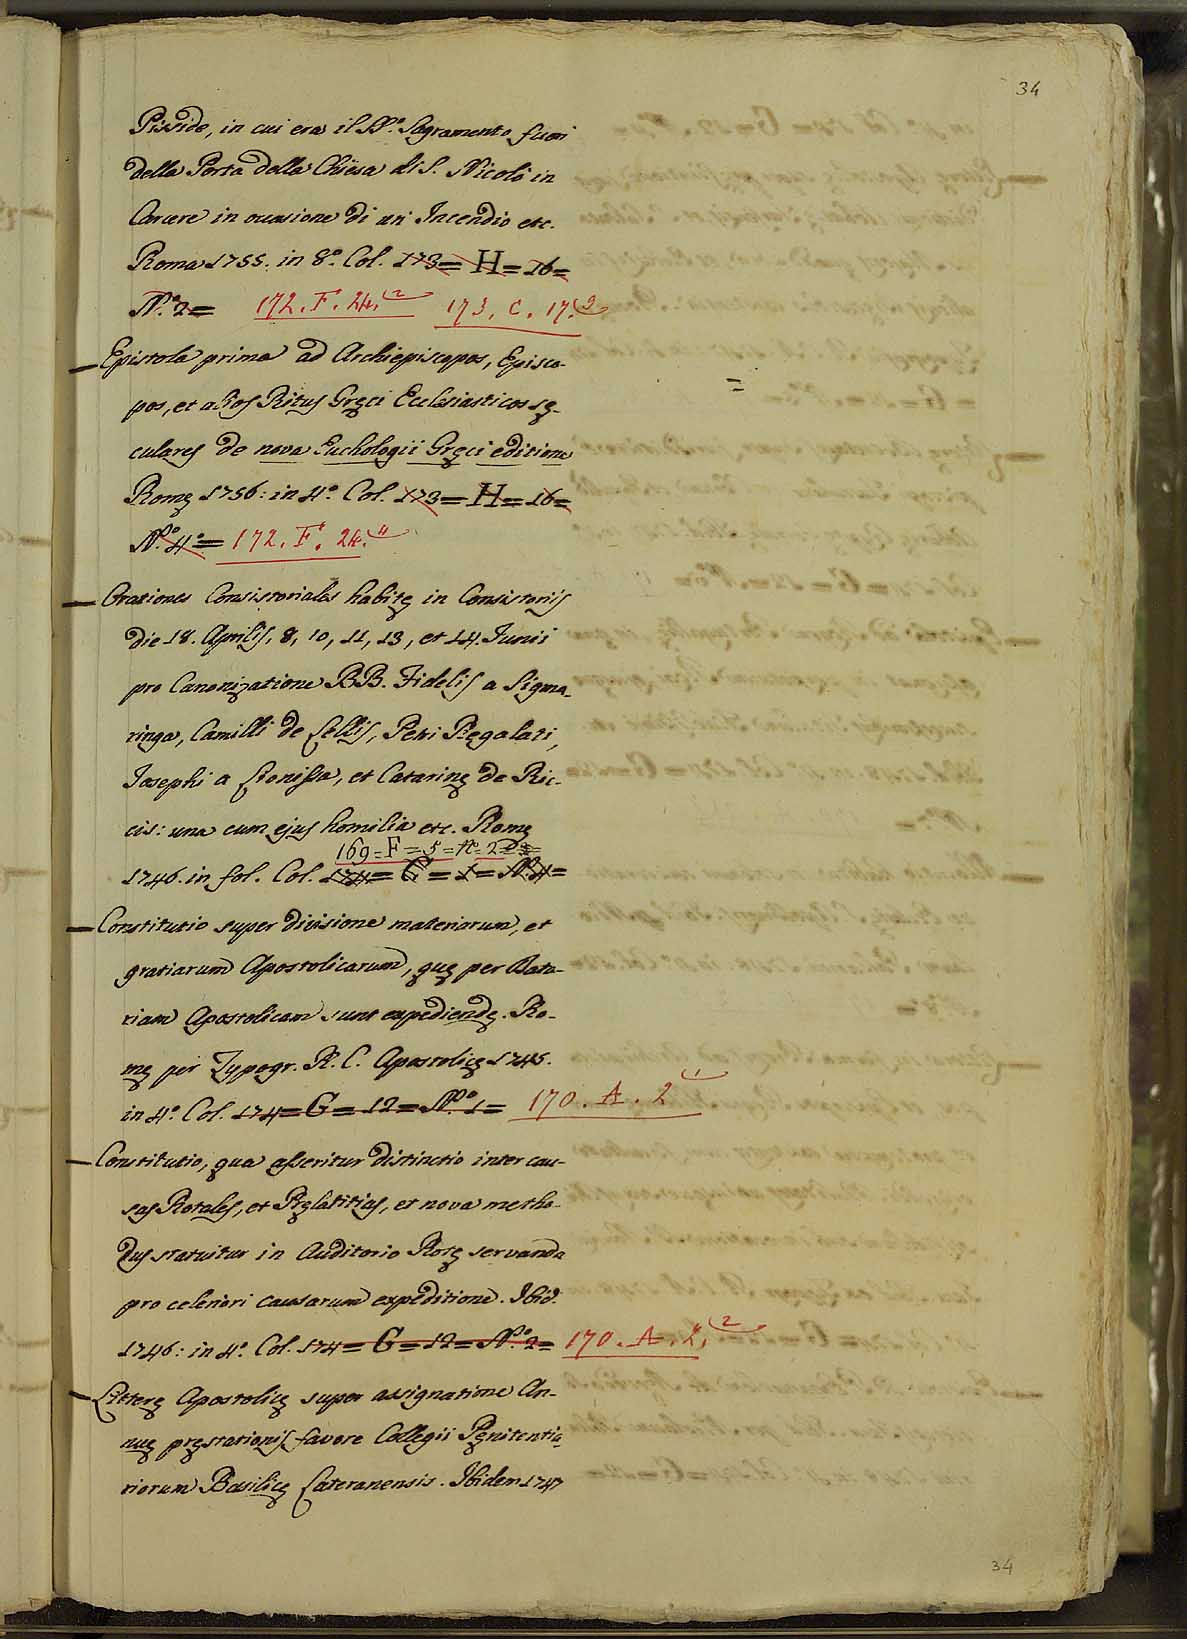 34
Pisside, in cui era il SS.º Sagramento fuori
della Porta della Chiesa di S. Nicolò in
Carcere in occasione di un Incendio etc.
Roma 1755. in 8.º Col. 173 = H = 16 =
N.º 2 = 172. F. 24. 2 173. C. 17. 2
Epistola prima ad Archiepiscopos, Episco-
pos, et alios Ritus Gręci Ecclesiasticos sę-
culares de nova Euchologii Gręci editione
Romę 1756: in 4.º Col. 173 = H = 16 =
N.º 4.º = 172. F. 24. 4
Orationes Consistoriales habitę in Consistoriis
die 18. Aprilis, 8, 10, 11, 13, et 14. Junii
pro Canonizatione BB. Fidelis a Sigma-
ringa, Camilli de Lellis, Petri Regalati,
Josephi a Leonissa, et Catarinę de Ric-
cis: una cum ejus homilia etc. Romę
169 = F = 5 = N.º 2
1746. in fol. Col. 174 = G = 1 = N.º 4 =
Constitutio super divisione materiarum, et
gratiarum Apostolicarum, quę per Data-
riam Apostolicam sunt expediendę. Ro-
mę per Typogr. R. C. Apostolicę 1745.
in 4.º Col. 174 = G = 12 = N.º 1 = 170. A. 2 1
Constitutio, qua asseritur distinctio inter cau-
sas Rotales, et Pręlatitias, et nova metho-
dus statuitur in Auditorio Rotę servanda
pro celeriori causarum expeditione. Ibid.
1746: in 4.º Col. 174 = G = 12 = N.º 2 = 170. A. 2. 2
Litterę Apostolicę super assignatione An-
nuę pręstationis favore Collegii Pęnitentia
riorum Basilicę Lateranensis. Ibidem 1747
34